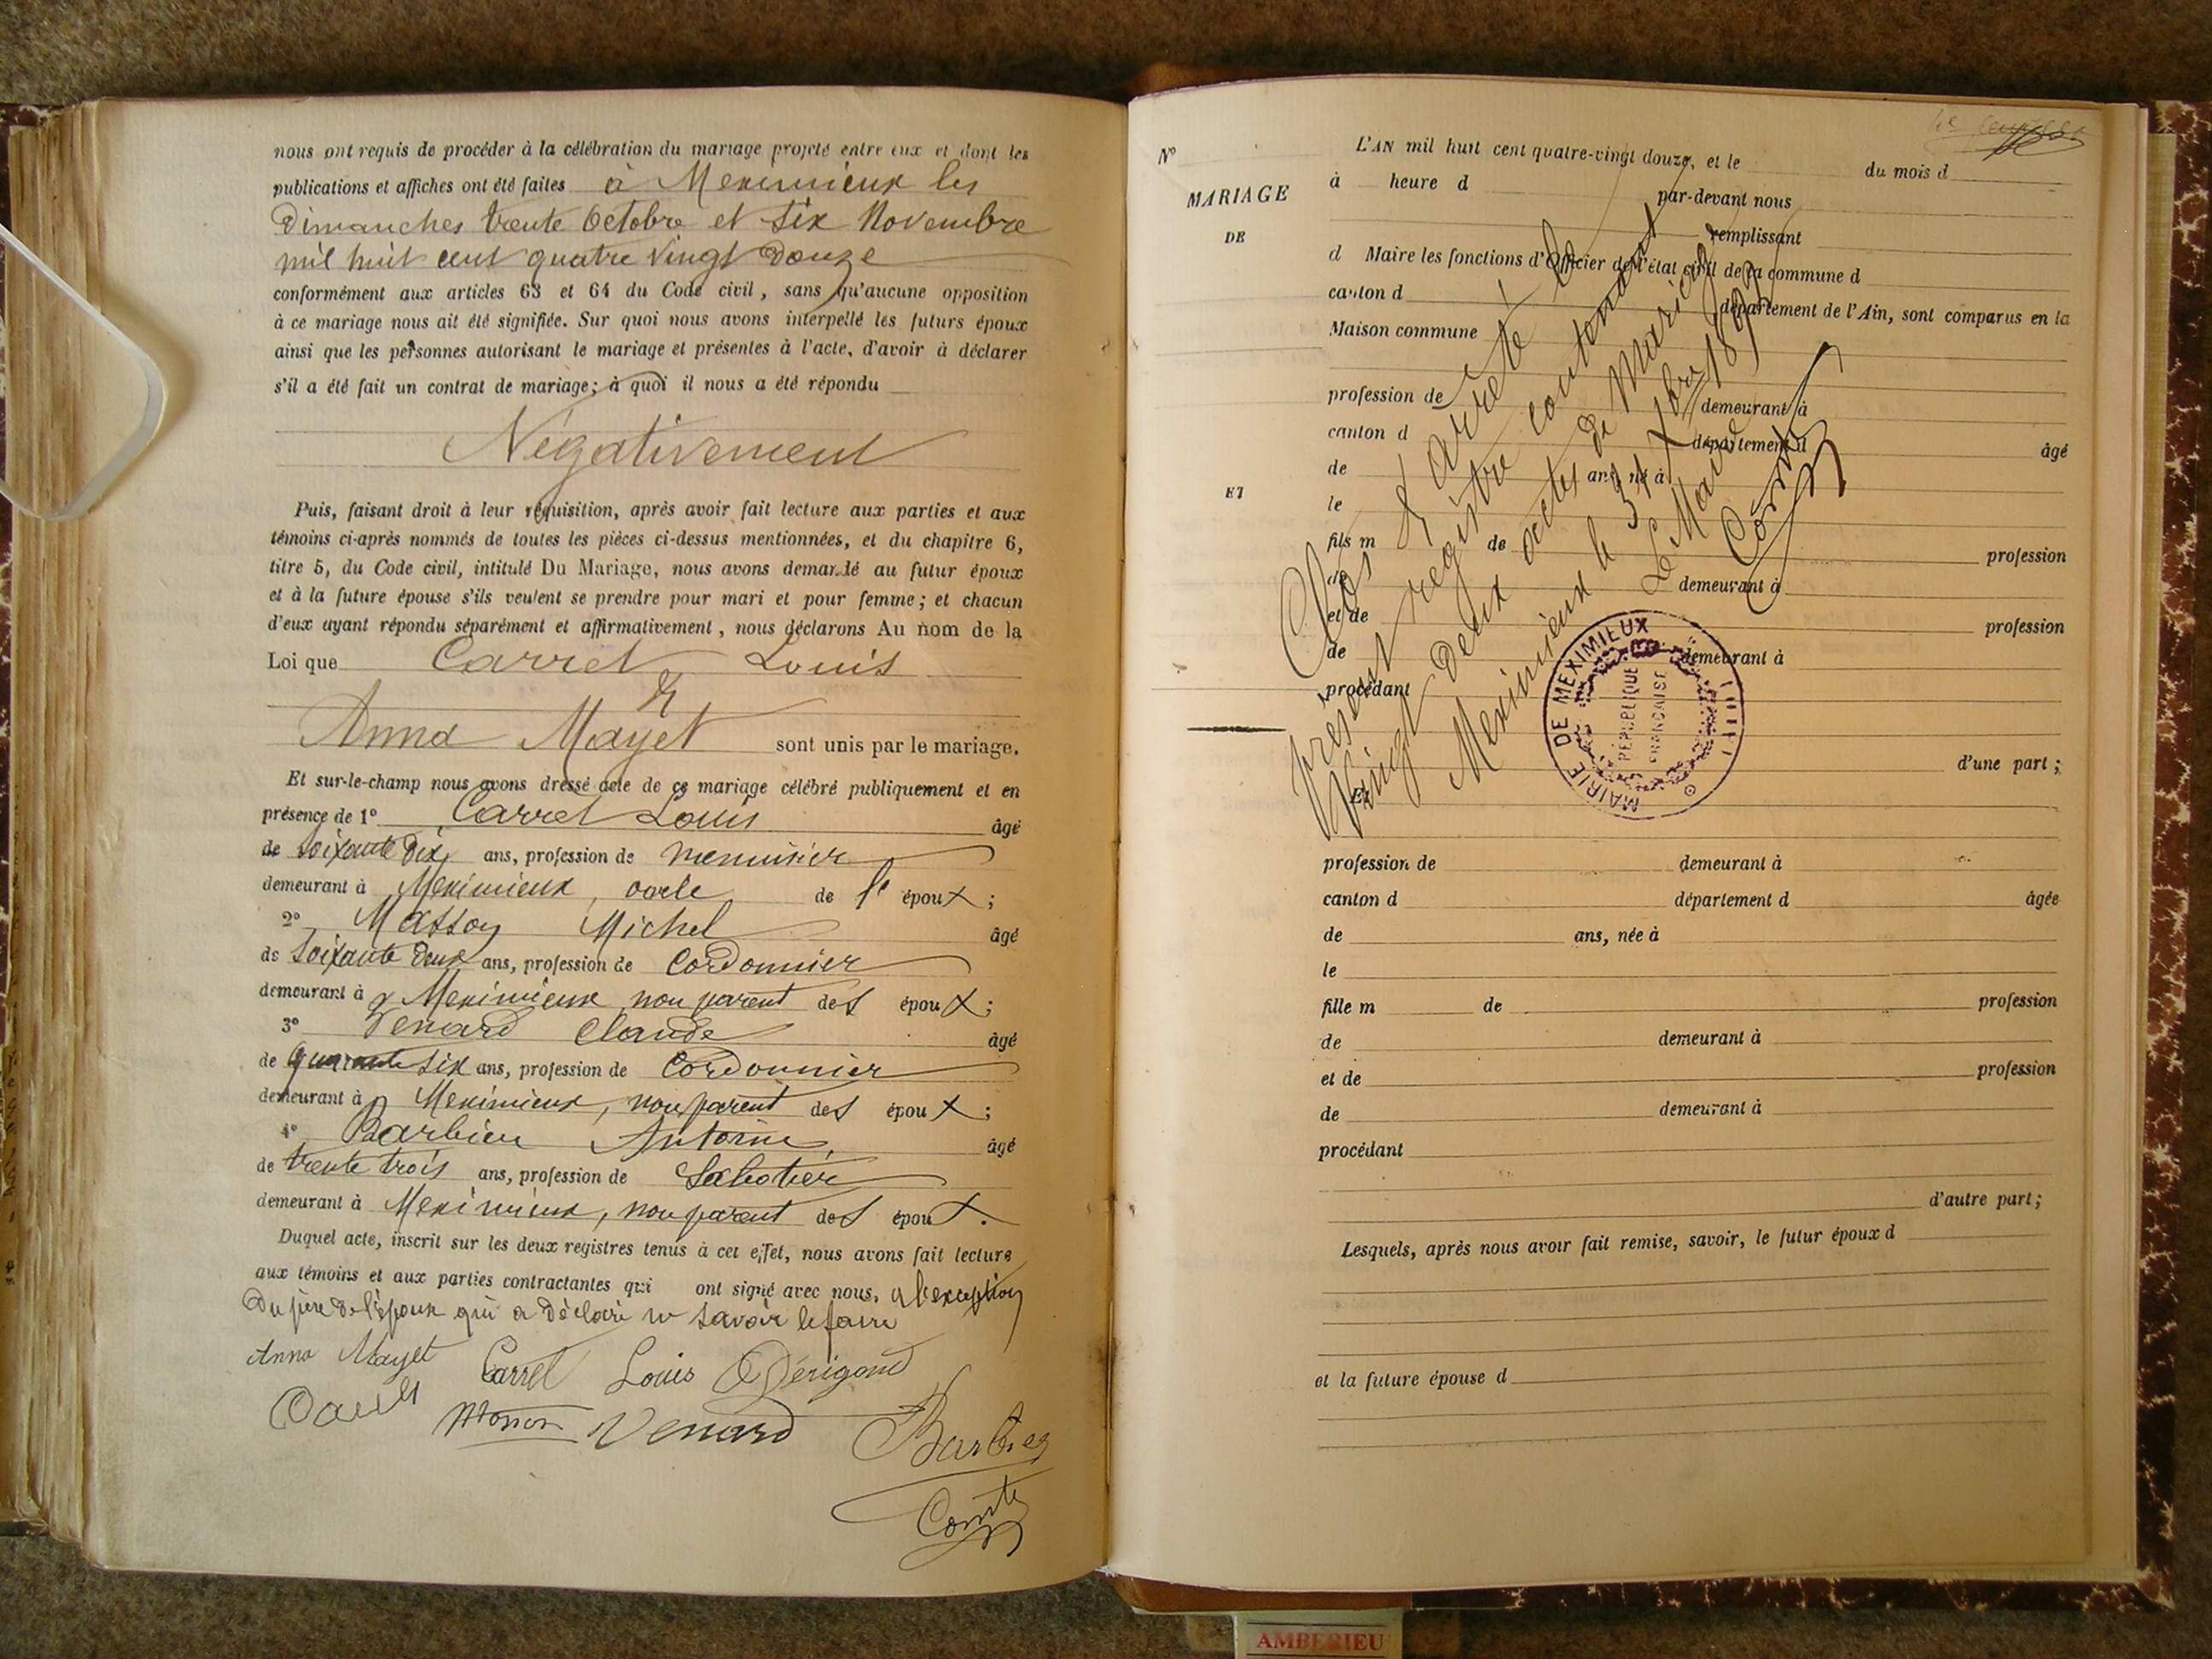 nous ont requis de procéder à la célébration du mariage projeté entre eux et dont les
publications et affiches ont été faites à Meximieux les
Dimanches trente Octobre et Six Novembre
mil huit cent quatre vingt Douze
conformément aux articles 63 et 64 du Code civil, sans qu'aucune opposition
à ce mariage nous ait été signifiée. Sur quoi nous avons interpellé les futurs époux
ainsi que les personnes autorisant le mariage et présentes à l'acte, d'avoir à déclarer
s'il a été fait un contrat de mariage; à quoi il nous a été répondu
Négativement
Puis, faisant droit à leur réquisition, après avoir fait lecture aux parties et aux
témoins ci-après nommés de toutes les pièces ci-dessus mentionnées, et du chapitre 6,
titre 5, du Code civil, intitulé Du Mariage, nous avons demandé au futur époux
et à la future épouse s'ils veulent se prendre pour mari et pour femme; et chacun
d'eux ayant répondu séparément et affirmativement, nous déclarons Au nom de la
Loi que Carrel Louis
&
Anna Mayet sont unis par le mariage.
Et sur-le-champ nous avons dressé acte de ce mariage célébré publiquement et en
présence de 1° Carrel Louis âgé
de soixante Dix ans, profession de menuisier
demeurant à Meximieux, oncle de l' époux;
2° Masson Michel âgé
de soixante Deux ans, profession de Cordonnier
demeurant à Meximieux non parent des époux;
3° Venard Claude âgé
de quarante six ans, profession de Cordonnier
demeurant à Meximieux, non parent des époux;
4° Barbier Antoine âgé
de trente trois ans, profession de Sabotier
demeurant à Meximieux, non parent des époux.
Duquel acte, inscrit sur les deux registres tenus à cet effet, nous avons fait lecture
aux témoins et aux parties contractantes qui ont signé avec nous, à l'exception
Du père de l'époux qui a Déclaré ne savoir le faire
Anna Mayet Carrel Louis
Masson Venard Barbier
Comte
N°
MARIAGE
DE
ET
L'AN mil huit cent quatre-vingt douze, et le du mois d
à heure d par-devant nous
remplissant
d Maire les fonctions d'Officier de l'état civil de la commune d
canton d département de l'Ain, sont comparus en la
Maison commune
profession de demeurant à
canton d département d âgé
de ans, né à
le
fils m de profession
de demeurant à
et de profession
de demeurant à
procédant
d'une part;
Et
Clos & arrêté le
présent registre contenant
Vingt Deux actes de Mariage
Meximieux le 31 Xbre 1892
Le Maire
Comte
MAIRIE DE MEXIMIEUX
RÉPUBLIQUE
FRANÇAISE
profession de demeurant à
canton d département d âgée
de ans, née à
le
fille m de profession
de demeurant à
et de profession
de demeurant à
procédant
d'autre part;
Lesquels, après nous avoir fait remise, savoir, le futur époux d
et la future épouse d
AMBERIEU